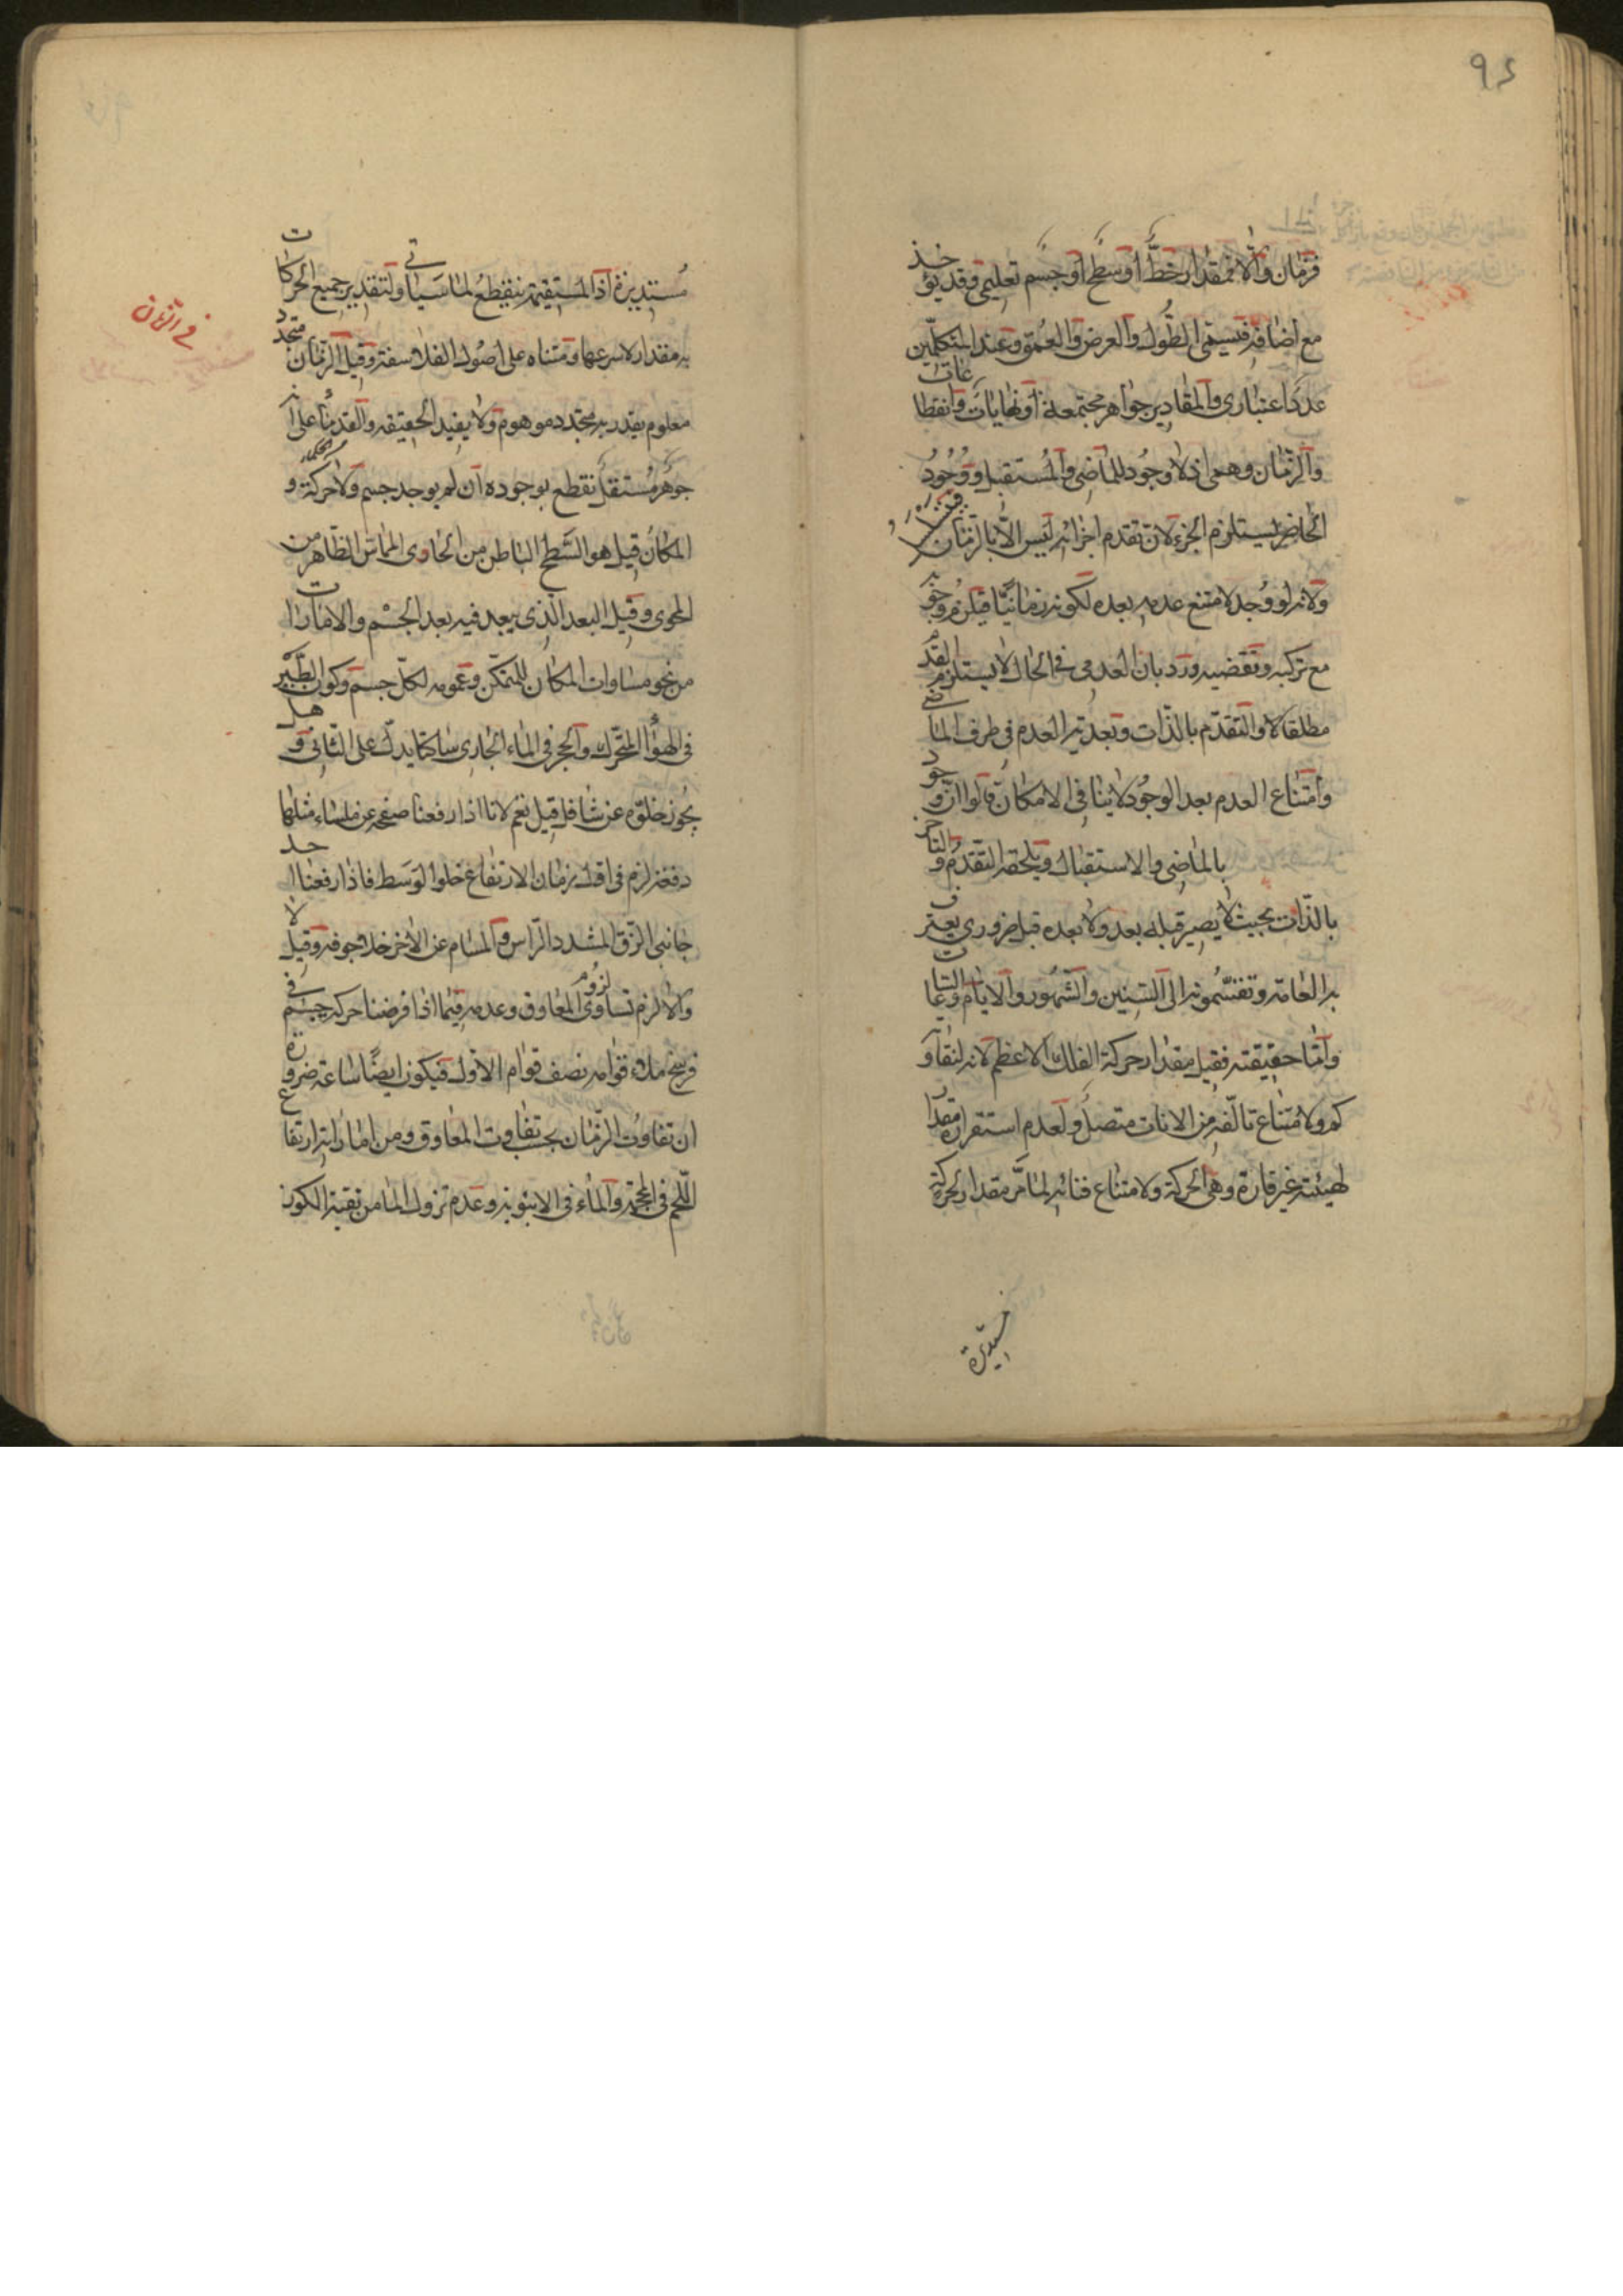 ٩٤
فزمان والا فمقدار خط او سطح او جسم تعليمى وقد يؤخذ
مع اضافة فيسمى الطول والعرض والعمق وعند المتكلمين
عدد اعتبارى والمقادير جواهر مجتمعة او نهايات وانقطاعات
والزمان وهمى اذ لا وجود للماضى والمستقبل ووجود
الحاضر يستلزم الجزء لان تقدم اجزائه ليس الا بالزمان
ولانه لو وجد لامتنع عدمه بعده لكونه زمانيا فيلزم وجوبه
مع تركبه وتقضيه ورد بان العدمى فى الحال لا يستلزم العدم
مطلقا والتقدم بالذات وبعدية العدم فى طرف الماضى
وامتناع العدم بعد الوجود لا ينافى الامكان قالوا ان وجود
بالماضى والاستقبال ويلحقه التقدم والتاخر
بالذات بحيث لا يصير قبله بعد ولا بعده قبل ضرورى يعترف
به العامة وتقسمونه الى السنين والشهور والايام والساعات
واما حقيقته فقيل مقدار حركة الفلك الاعظم لانه لتفاوته
كم ولامتناع تالفه من الانات متصل ولعدم استقراره مقدار
لهيئة غير قارة وهى الحركة ولامتناع فنائه لما مر مقدار لحركة
مستديرة
مستديرة اذ المستقيمة ينقطع لما سياتى ولتقدير جميع الحركات
به مقدار لاسرعها ومبناه على اصول الفلاسفة وقيل الزمان متجدد
معلوم يقدر به متجدد موهوم ولا يفيد الحقيقة والقدماء على انه
جوهر مستقل نقطع بوجوده ان لم يوجد جسم ولا حركة و
المكان قيل هو السطح الباطن من الحاوى المماس الظاهر من
المحوى وقيل البعد الذى يبعد فيه بعد الجسم والامارات
من نحو مساوات المكان للمتمكن وعمومه لكل جسم وكون الطير
فى الهواء المتحرك والحجر فى الماء الجارى ساكنا يدل على الثانى وهل
يجوز خلوه عن شاغل قيل نعم لانا اذا رفعنا صفحة عن ملساء مثلها
دفعة لزم فى اول زمان الارتفاع خلو الوسط فاذا رفعنا احد
جانبى الزق المشدد الراس والمسام عن الاخر خلا جوفه وقيل لا
والا لزم تساوى لزوم المعاوق وعدمه فيما اذا فرضنا حركة جسم فى
فرسخ ملاء قوامه نصف قوام الاول فيكون ايضا ساعة ضرورة
ان تفاوت الزمان بحسب تفاوت المعاوق ومن اماراته ارتفاع
اللحم فى المحجمة والماء فى الانبوبة وعدم نزول الماء من ثقبة الكوز
فى الزمان